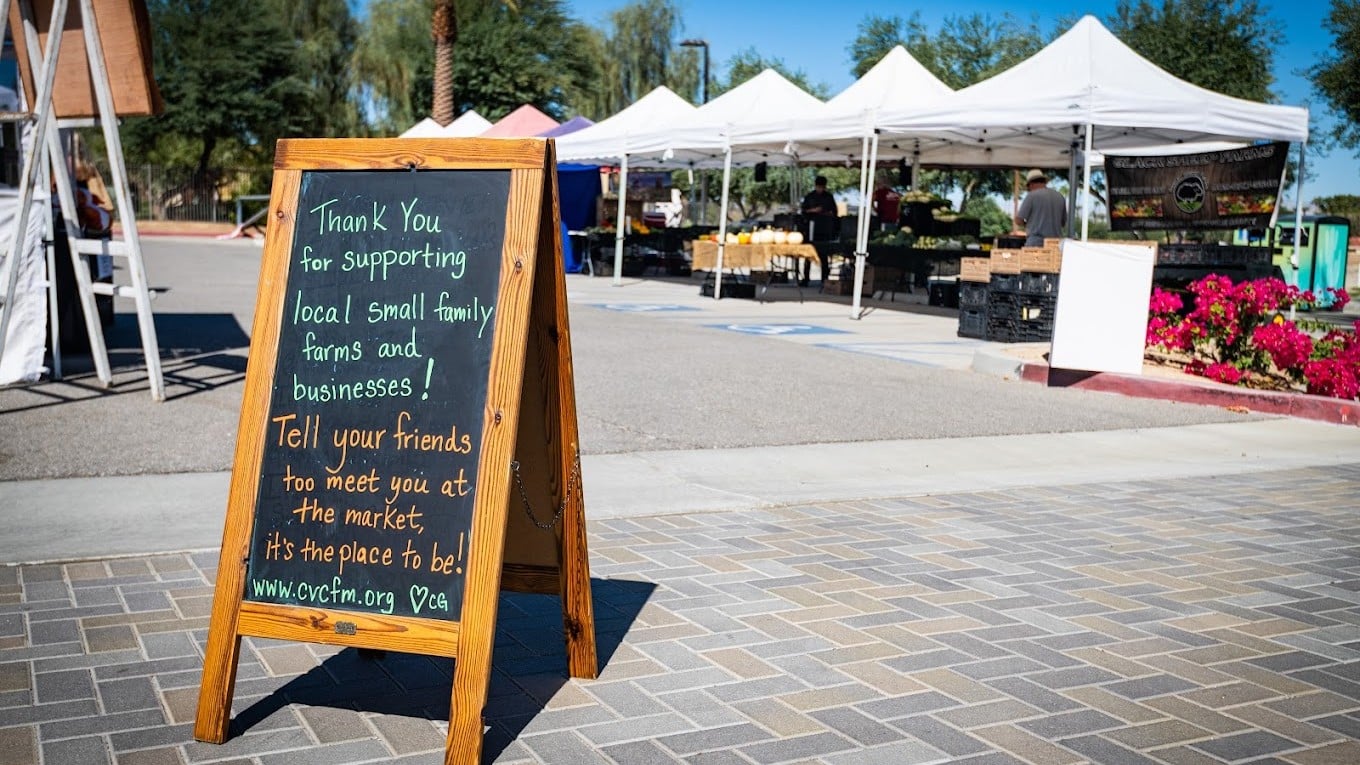 Thank You
for supporting
local small family
farms and
businesses!
Tell your friends
too meet you at
the market,
it's the place to be!
www.cvcfm.org ♡CG
FARMS